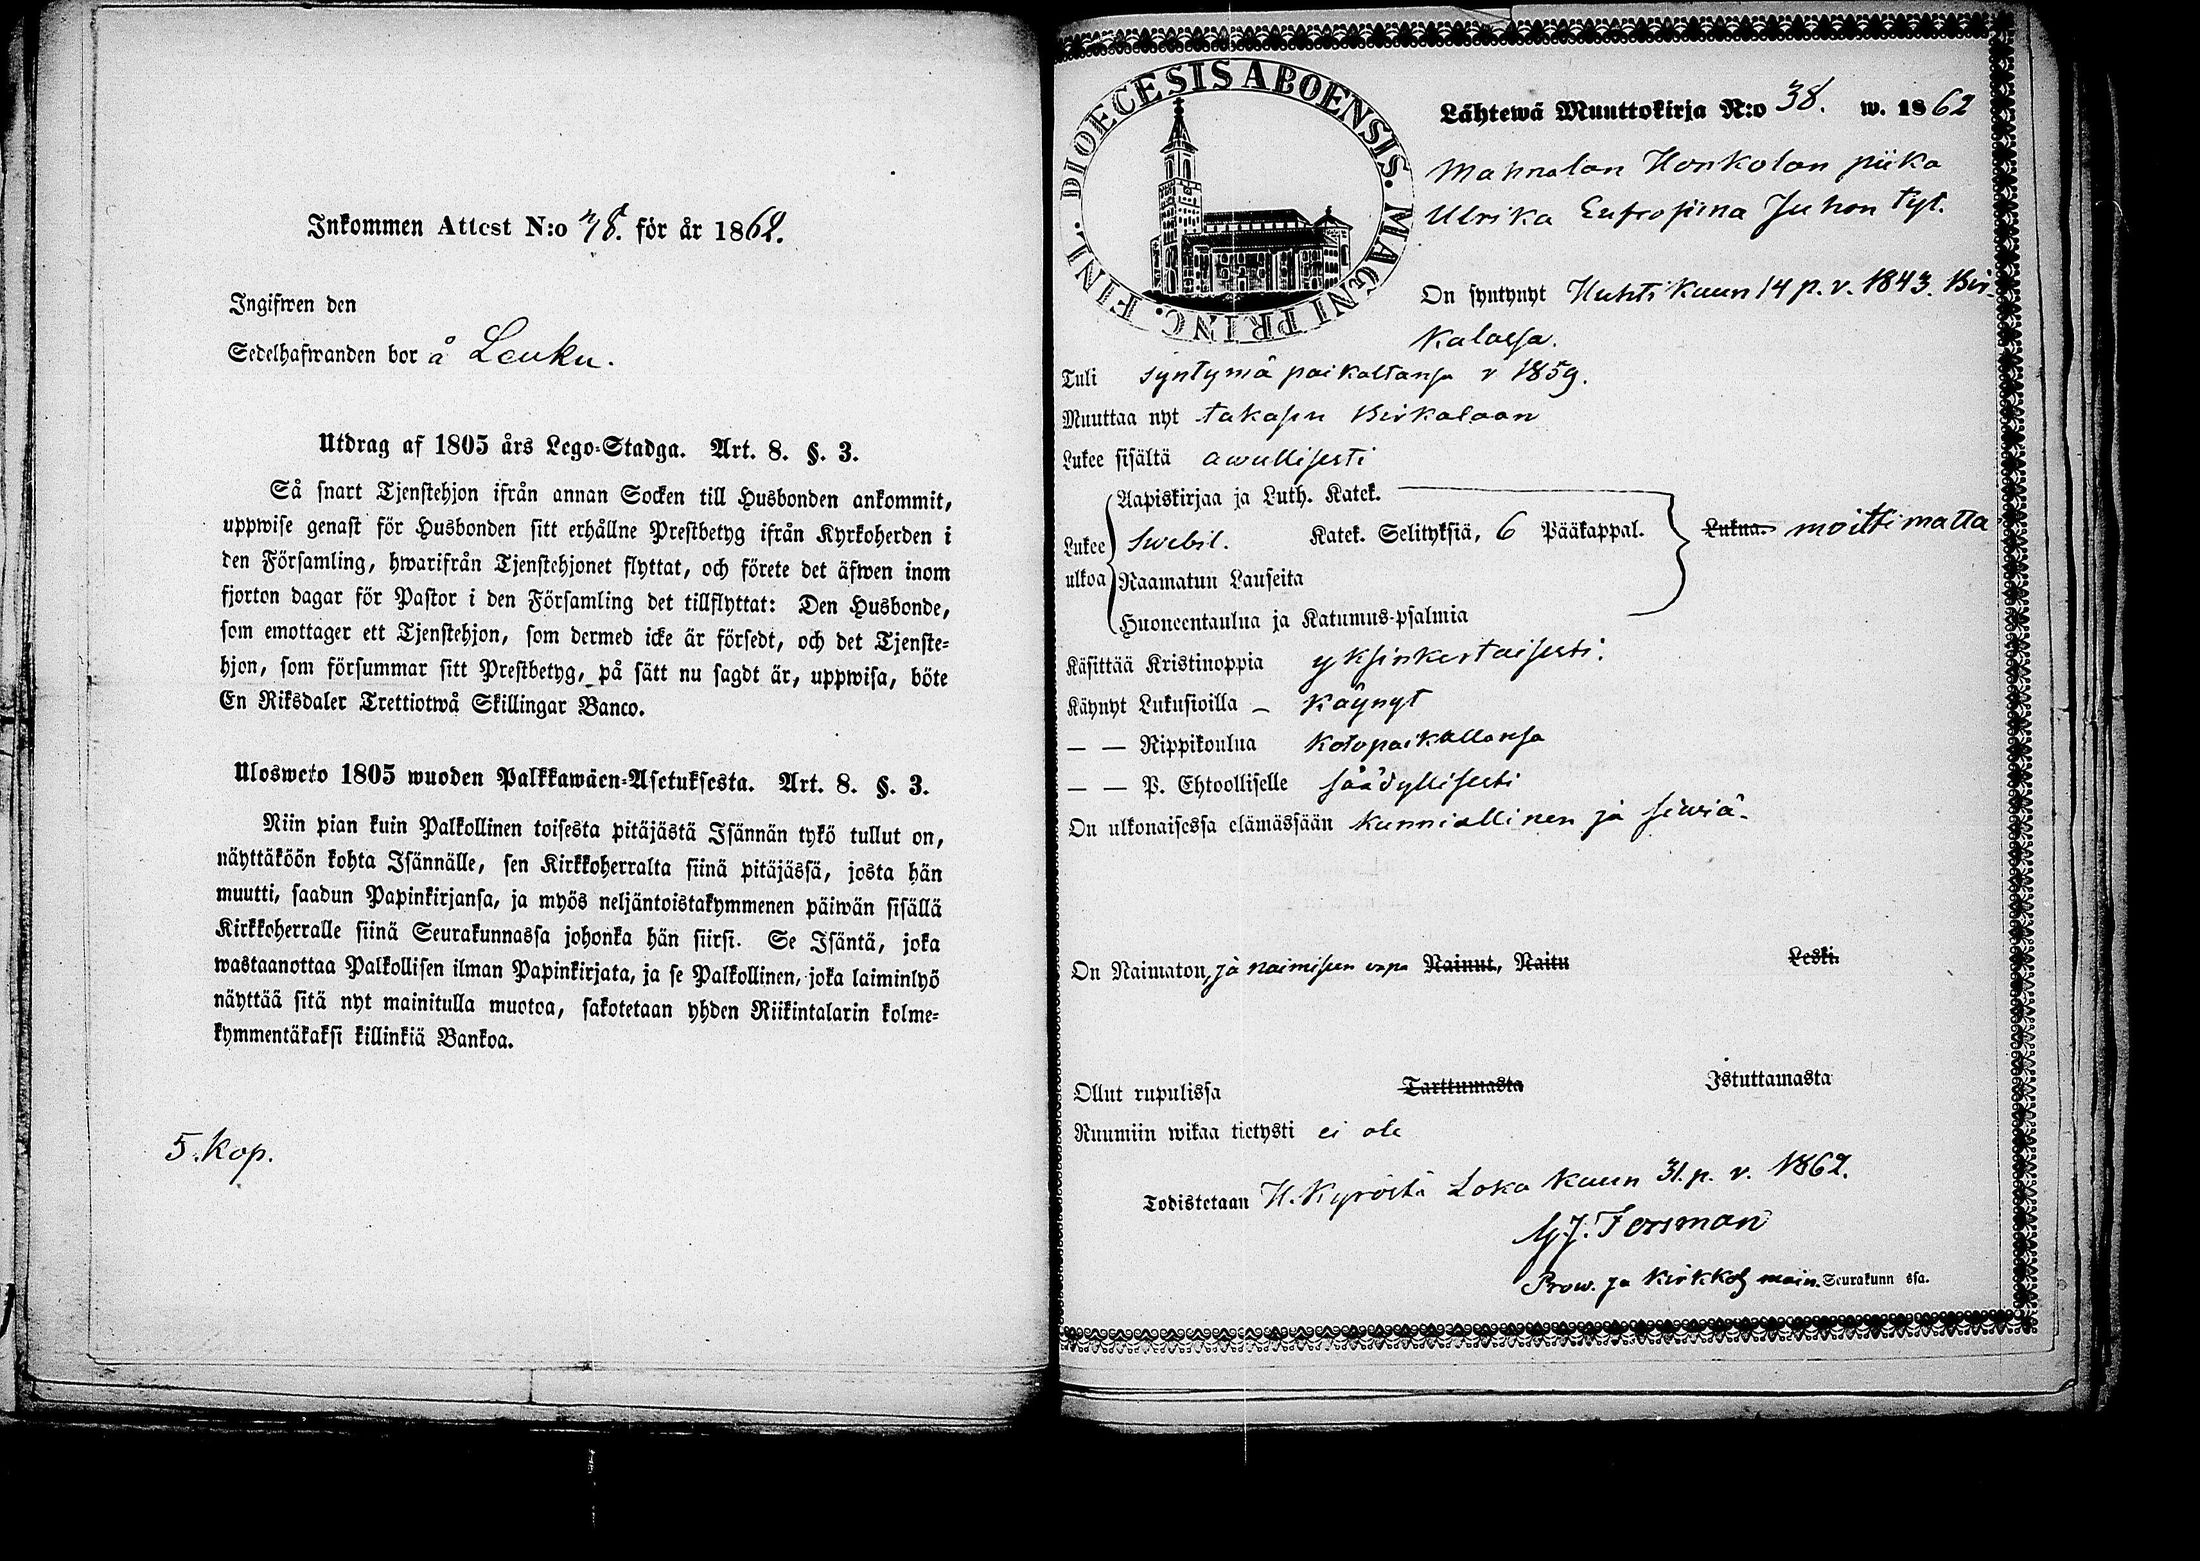 Inkommen Attest N:o 78. för år 1862.
Ingifwen den
Sedelhafwanden bor å Leuku.
Utdrag af 1805 års Lego-Stadga. Art. 8. §. 3.
Så snart Tjenstehjon ifrån annan Socken till Husbonden ankommit,
uppwise genast för Husbonden sitt erhållne Prestbetyg ifrån Kyrkoherden i
den Församling, hwarifrån Tjenstehjonet flyttat, och förete det äfwen inom
fjorton dagar för Pastor i den Församling det tillflyttat: Den Husbonde,
som emottager ett Tjenstehjon, som dermed icke är försedt, och det Tjenste-
hjon, som försummar sitt Prestbetyg, på sätt nu sagdt är, uppwisa, böte
En Riksdaler Trettiotwå Skillingar Banco.
Ulosweto 1805 wuoden Palkkawäen-Asetuksesta. Art. 8. §. 3.
Niin pian kuin Palkollinen toisesta pitäjästä Isännän tykö tullut on,
näyttäköön kohta Isännälle, sen Kirkkoherralta siinä pitäjässä, josta hän
muutti, saadun Papinkirjansa, ja myös neljäntoistakymmenen päiwän sisällä
Kirkkoherralle siinä Seurakunnassa johonka hän siirsi. Se Isäntä, joka
wastaanottaa Palkollisen ilman Papinkirjata, ja se Palkollinen, joka laiminlyö
näyttää sitä nyt mainitulla muotoa, sakotetaan yhden Riikintalarin kolme-
kymmentäkaksi killinkiä Bankoa.
5. kop.
DIOECESIS ABOENSIS. MAGNI PRINC. FINL.
Lähtewä Muuttokirja N:o 38. w. 1862
Mahnalan Honkolan piika
Ulrika Eufrosina Juhon tyt.
On syntynyt Huhti kuun 14 p. v. 1843. Bir-
kalassa.
Tuli syntymä paikaltansa v 1859.
Muuttaa nyt takasin Birkalaan
Lukee sisältä awullisesti
Aapiskirjaa ja Luth. Katek.
Lukee ulkoa Swebil. Katek. Selityksiä, 6 Pääkappal. Lukua. moittimatta
Raamatun Lauseita
Huoneentaulua ja Katumus-psalmia
Käsittää Kristinoppia yksinkertaisesti.
Käynyt Lukusioilla – käynyt
— — Rippikoulua kotopaikallansa
— — P. Ehtoolliselle säädyllisesti
On ulkonaisessa elämässään kunniallinen ja siwiä.
On Naimaton, ja naimiseen vapa Nainut, Naitu Leski.
Ollut rupulissa Tarttumasta Istuttamasta
Ruumiin wikaa tietysti ei ole
Todistetaan H. Kyröstä Loka kuun 31. p. v. 1862.
G J. Forsman
Prow. ja Kirkkoh main. Seurakunn ssa.